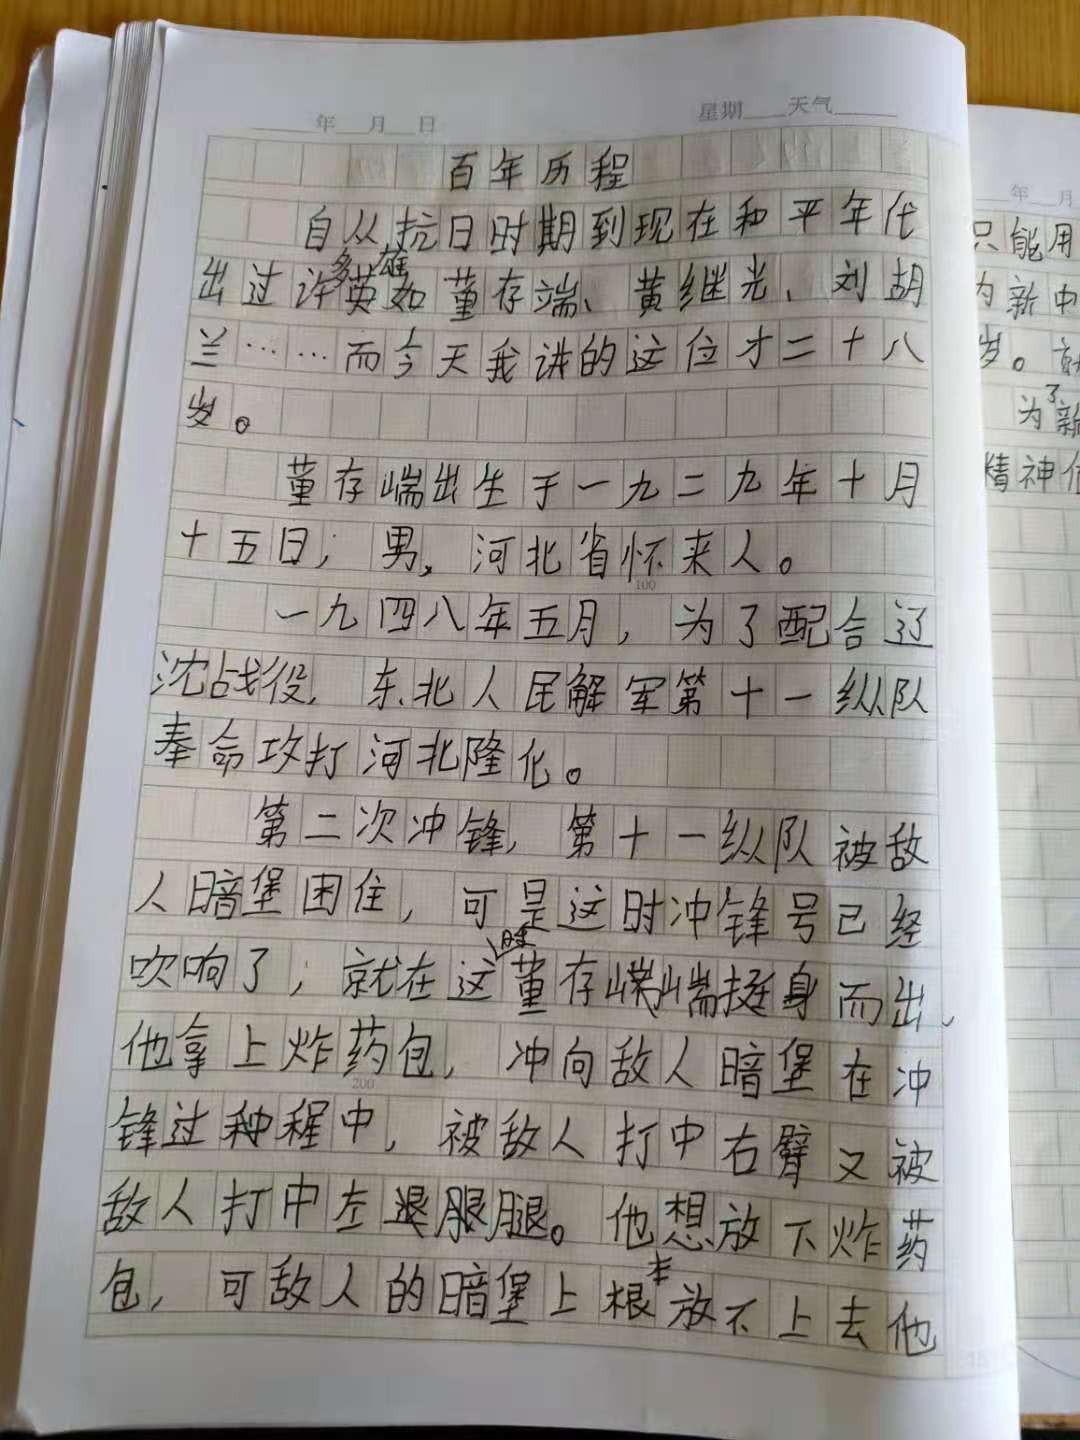 年 月 日 星期 天气
百年历程
自从抗日时期到现在和平年代
出过许多英雄如董存端、黄继光、刘胡
兰……而今天我讲的这位才二十八
岁。
董存端出生于一九二九年十月
十五日，男，河北省怀来人。
100
一九四八年五月，为了配合辽
沈战役，东北人民解军第十一纵队
奉命攻打河北隆化。
第二次冲锋，第十一纵队被敌
人暗堡困住，可是这时冲锋号已经
吹响了，就在这时董存端挺身而出，
他拿上炸药包，冲向敌人暗堡在冲
200
锋过程中，被敌人打中右臂又被
敌人打中左腿。他想放下炸药
包，可敌人的暗堡上根本放不上去他
年 月
只能用
为新中
岁。
为了新
精神